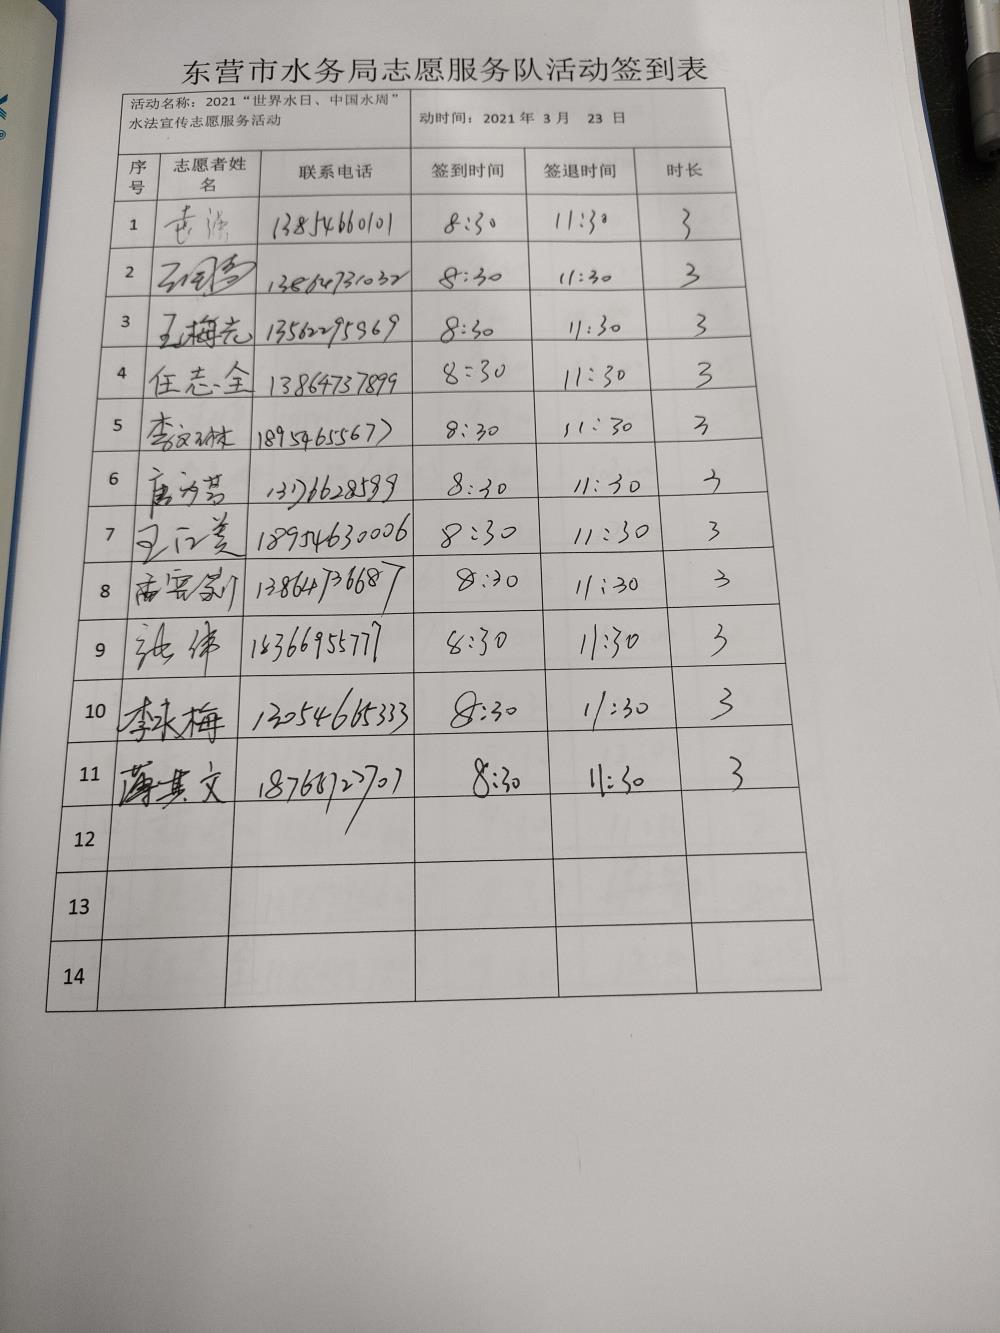 东营市水务局志愿服务队活动签到表
活动名称：2021“世界水日、中国水周” 动时间：2021 年 3 月 23 日
水法宣传志愿服务活动
序号 志愿者姓名 联系电话 签到时间 签退时间 时长
1 13854660101 8:30 11:30 3
2 13864731032 8:30 11:30 3
3 王梅元 13562295969 8:30 11:30 3
4 任志全 13864737899 8:30 11:30 3
5 李文琳 18954655677 8:30 11:30 3
6 13176628599 8:30 11:30 3
7 王江美 18954630006 8:30 11:30 3
8 13864736687 8:30 11:30 3
9 张伟 18366955777 8:30 11:30 3
10 李咏梅 13054665333 8:30 11:30 3
11 薄其文 18766727707 8:30 11:30 3
12
13
14